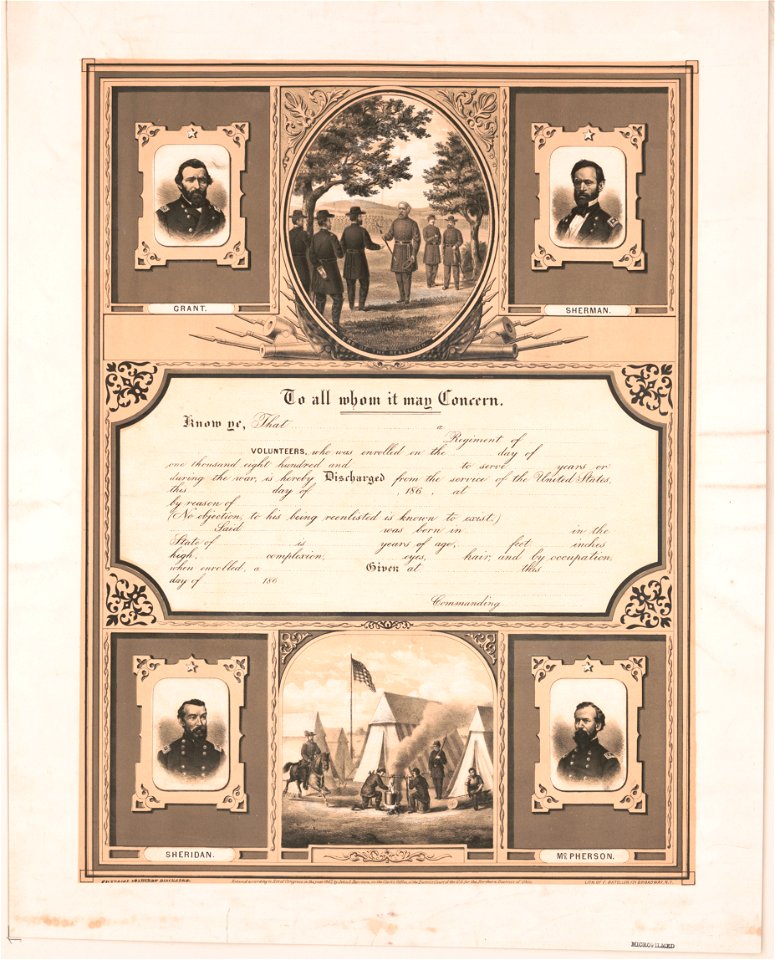 GRANT.
SHERMAN.
To all whom it may Concern.
Know ye, That a
Regiment of
VOLUNTEERS, who was enrolled on the day of
one thousand eight hundred and to serve years or
during the war, is hereby Discharged from the service of the United States,
this day of , 186 , at
by reason of
(No objection to his being reenlisted is known to exist.)
Said was born in in the
State of is years of age, feet inches
high, complexion, eyes, hair; and by occupation,
when enrolled, a Given at this
day of 186
Commanding
SHERIDAN.
McPHERSON.
Entered according to Act of Congress in the year by in the Clerk's Office of the District Court of the U.S. for the Northern District of Ohio.
LITH. OF BROADWAY, N.Y.
MICROFILMED